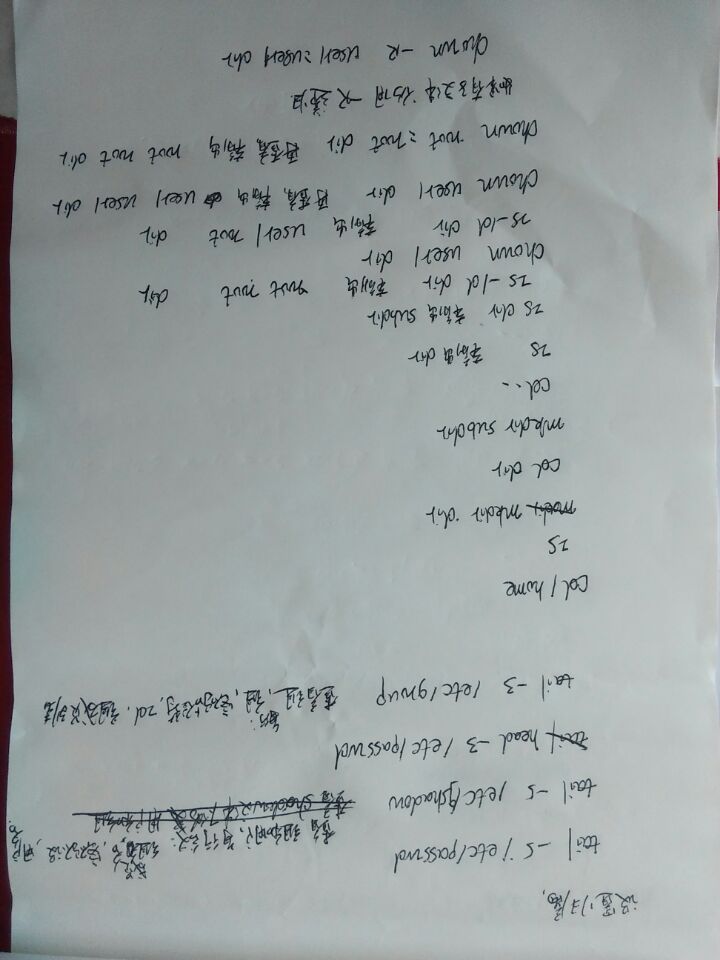 设置归属,
tail -5 /etc/passwd
查看 组和用户, 每行含义: 组名, 成员, 密码不设, 用户名
tail -5 /etc/gshadow
head -3 /etc/passwd
tail -3 /etc/group 查看组, 每行: 组, 密码占位符, id, 组成员列表
cd /home
ls
mkdir dir
cd dir
mkdir subdir
cd ..
ls 输出 dir
ls dir 输出 subdir
ls -ld dir 输出 root root dir
chown user1 dir
ls -ld dir 输出 user1 root dir
chown user1 dir 再查看, 输出 user1 user1 dir
chown root:root dir 再查看, 输出 root root dir
如果有子文件 仍用 -R 递归
chown -R user1:user1 dir